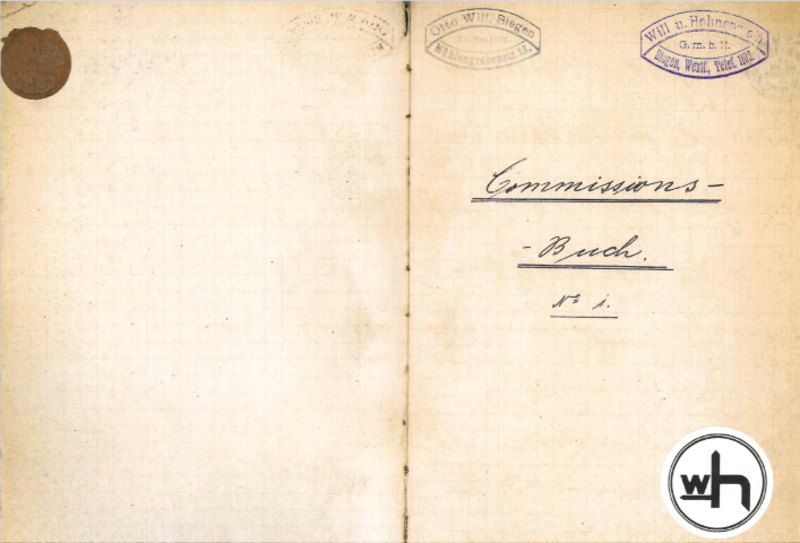 Otto Will, Siegen
Mühlengrabenstr. 13.
Will u. Hahnenstein
G. m. b. H.
Siegen, Westf., Telef. 1182.
Commissions-
- Buch.
No 1.
wh